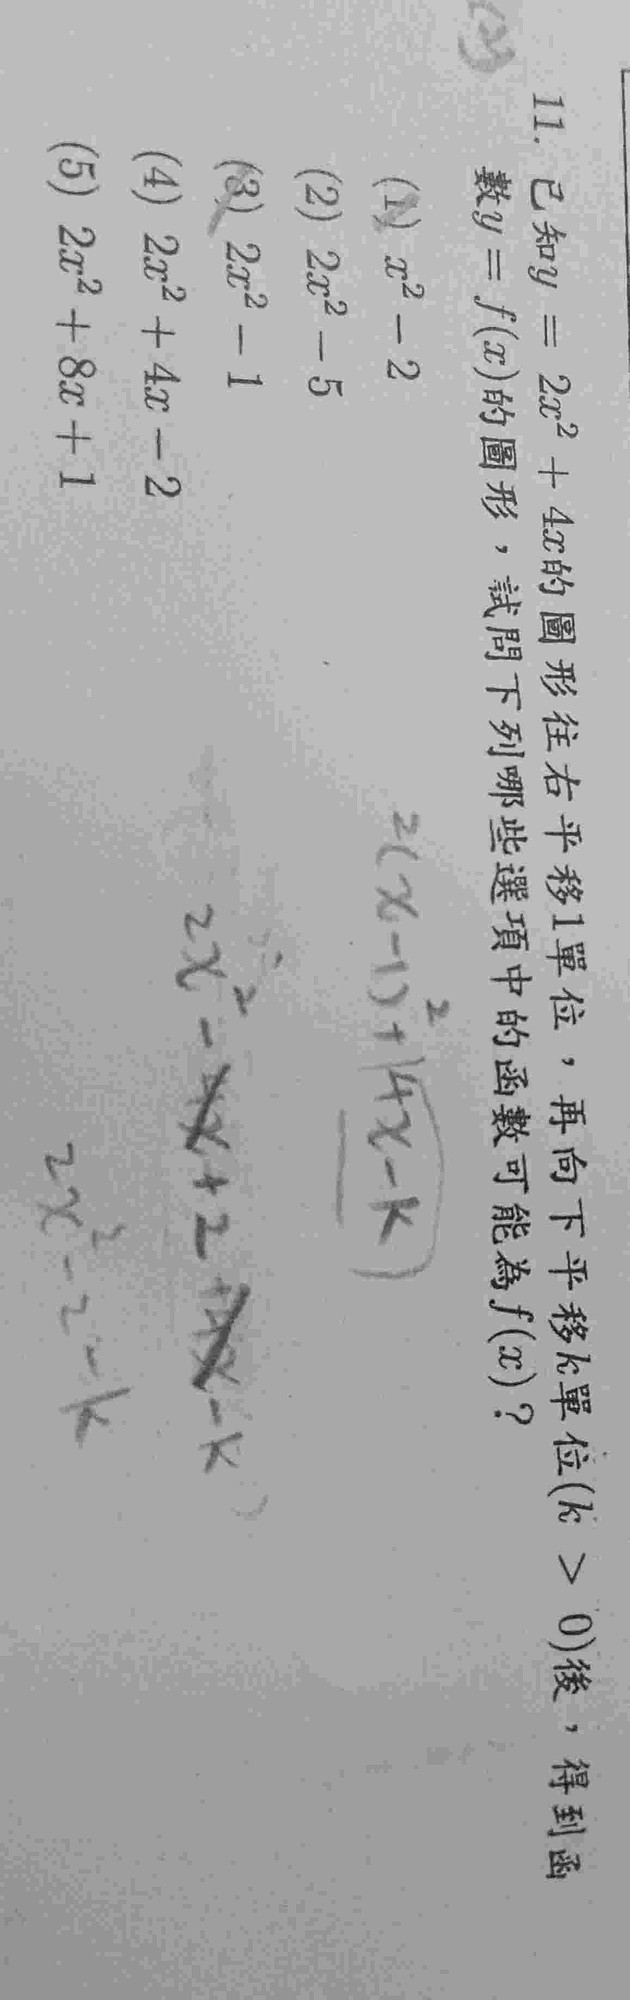 (2)
11. 已知y = 2x² + 4x的圖形往右平移1單位，再向下平移k單位(k > 0)後，得到函
數y = f(x)的圖形，試問下列哪些選項中的函數可能為f(x)？
(1) x² − 2
(2) 2x² − 5
(3) 2x² − 1
(4) 2x² + 4x − 2
(5) 2x² + 8x + 1
2(x−1)² + (4x−k)
2x² − 4x + 2 + 4x − k
2x² − 2 − k